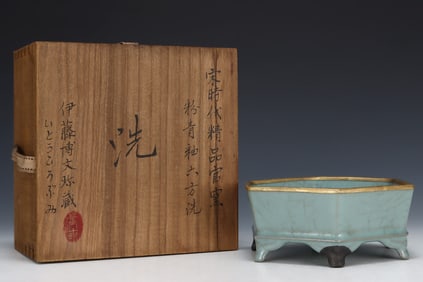 宋時代精品官窯
粉青釉六方洗
洗
伊藤博文珍蔵
いとうひろぶみ